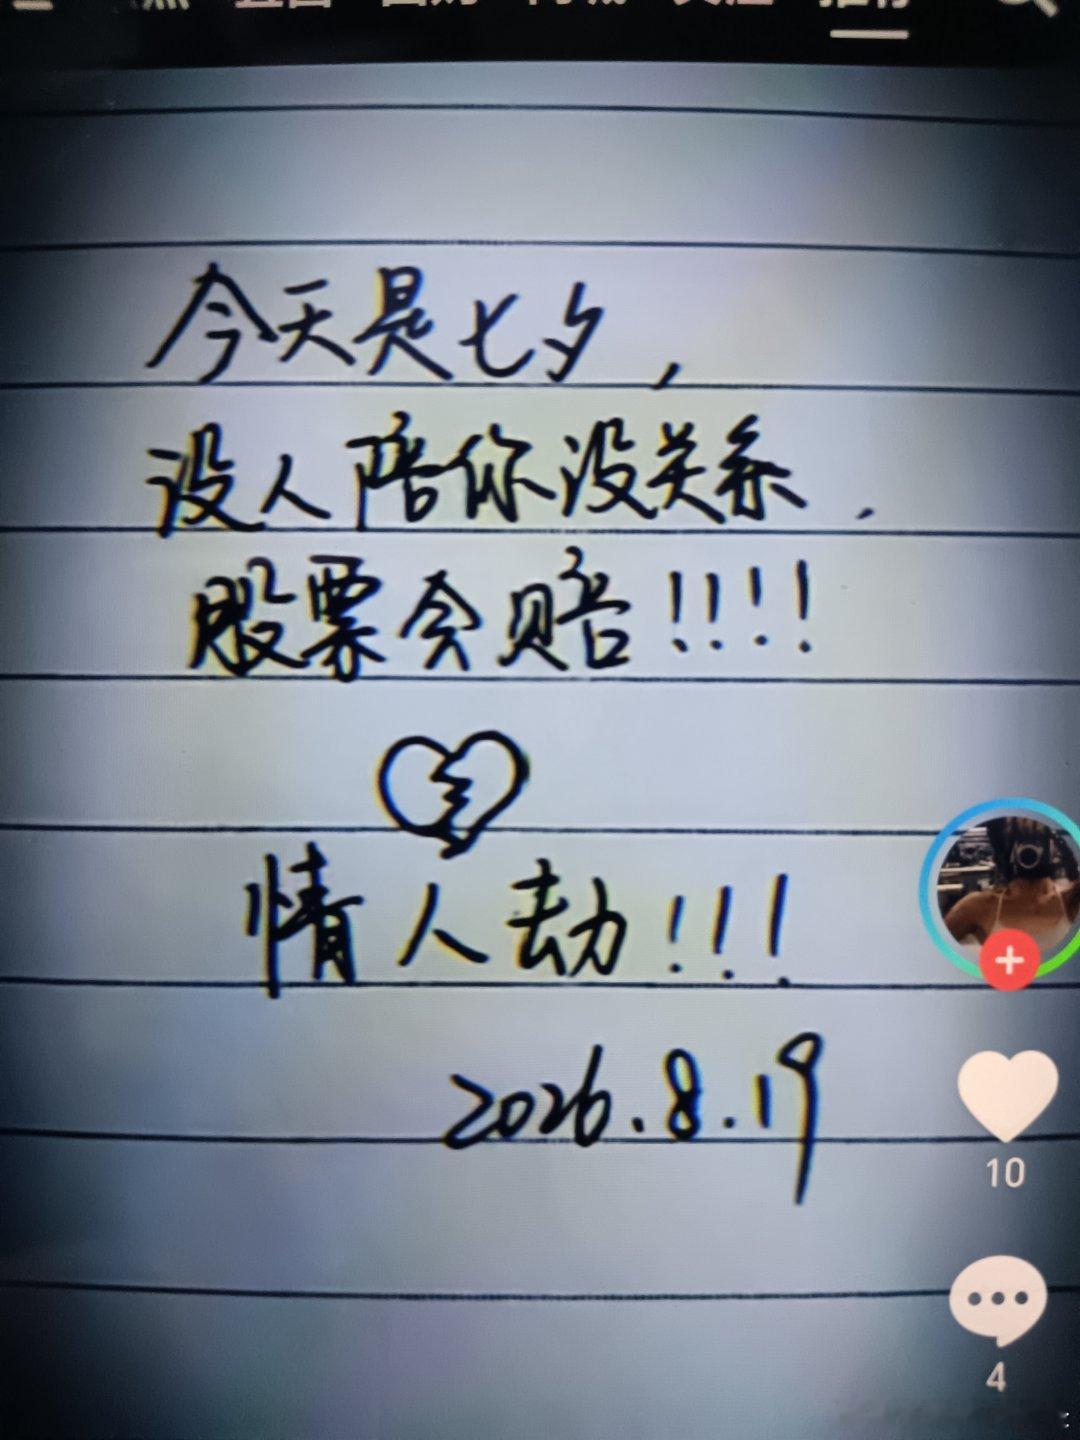 今天是七夕，
没人陪你没关系.
股票会赔！！！！
情人劫！！！
2026.8.19
10
4